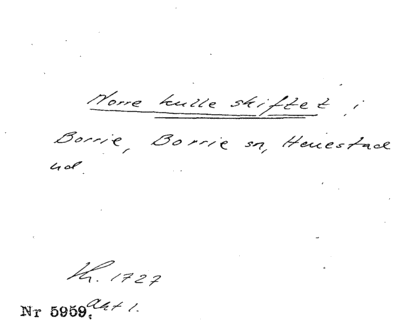 Norre kulle skiftet i
Borrie, Borrie sn, Herrestad
hd.
Kr. 1727
Nr 5959, Akt 1.